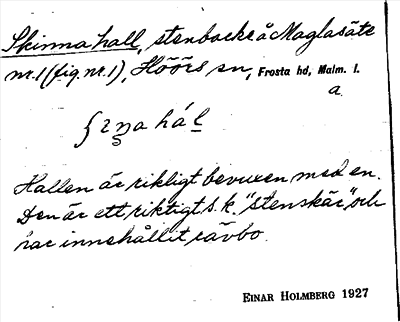 Skinnahall, stenbacke å Maglasäte
nr. 1 (fig. nr. 1), Höörs sn, Frosta hd, Malm. l.
a.
hál
Hallen är rikligt bevuxen med en.
Den är ett riktigt s. k. "stenskär", och
har innehållit rävbo.
EINAR HOLMBERG 1927